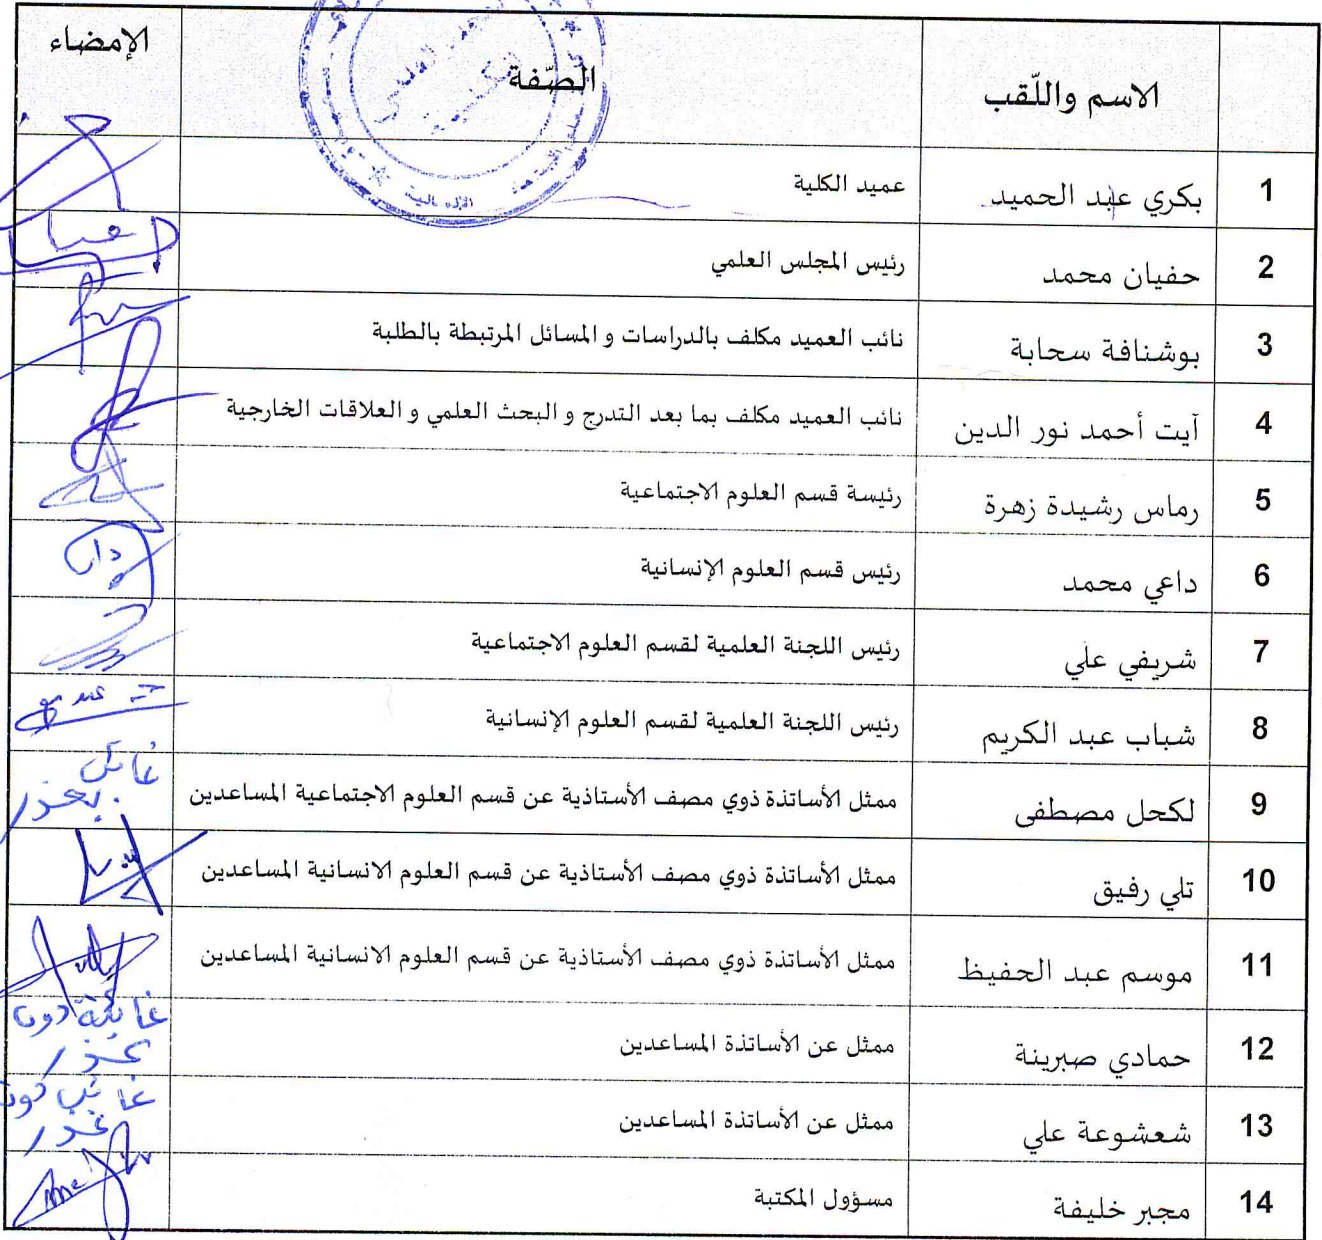 الاسم واللّقب الصّفة الإمضاء
1 بكري عبد الحميد عميد الكلية
2 حفيان محمد رئيس المجلس العلمي
3 بوشنافة سحابة نائب العميد مكلف بالدراسات و المسائل المرتبطة بالطلبة
4 آيت أحمد نور الدين نائب العميد مكلف بما بعد التدرج و البحث العلمي و العلاقات الخارجية
5 رماس رشيدة زهرة رئيسة قسم العلوم الاجتماعية
6 داعي محمد رئيس قسم العلوم الإنسانية
7 شريفي علي رئيس اللجنة العلمية لقسم العلوم الاجتماعية
8 شباب عبد الكريم رئيس اللجنة العلمية لقسم العلوم الإنسانية
9 لكحل مصطفى ممثل الأساتذة ذوي مصف الأستاذية عن قسم العلوم الاجتماعية المساعدين غائب بعذر
10 تلي رفيق ممثل الأساتذة ذوي مصف الأستاذية عن قسم العلوم الانسانية المساعدين
11 موسم عبد الحفيظ ممثل الأساتذة ذوي مصف الأستاذية عن قسم العلوم الانسانية المساعدين
12 حمادي صبرينة ممثل عن الأساتذة المساعدين غائبة دون عذر
13 شعشوعة علي ممثل عن الأساتذة المساعدين غائب دون عذر
14 مجبر خليفة مسؤول المكتبة